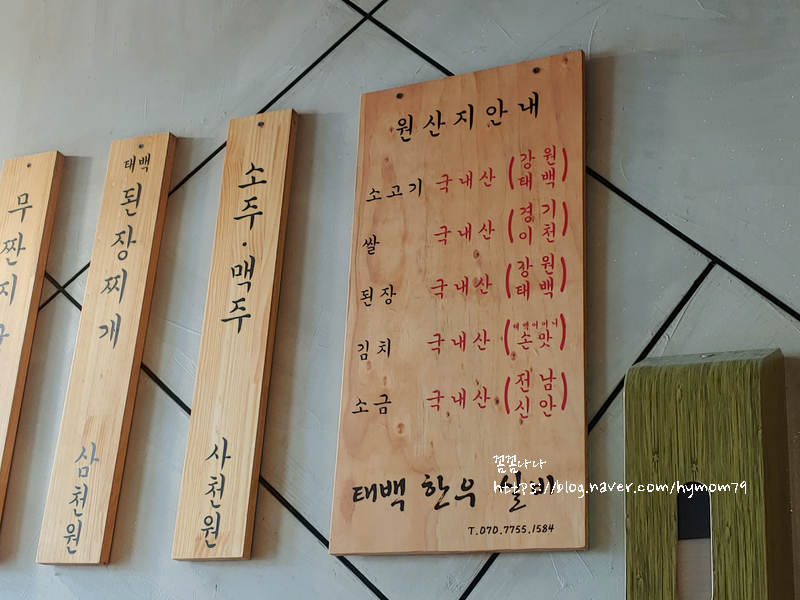 무
짠
지
태백
된장찌개
삼천원
소주·맥주
사천원
원산지안내
소고기 국내산 (강원 태백)
쌀 국내산 (경기 이천)
된장 국내산 (강원 태백)
김치 국내산 (태백어머니 손맛)
소금 국내산 (전남 신안)
태백 한우
T.070.7755.1584
꼼꼼나나
https://blog.naver.com/hymom79